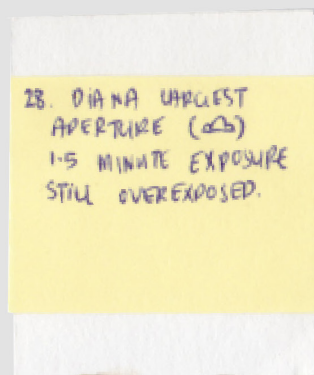 28. DIANA LARGEST
APERTURE (☁)
1.5 MINUTE EXPOSURE
STILL OVEREXPOSED.